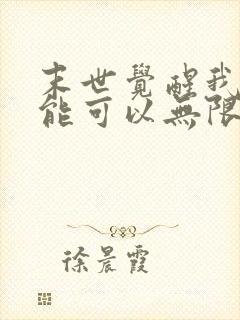 末世覺醒我
能可以無限
徐晨霞